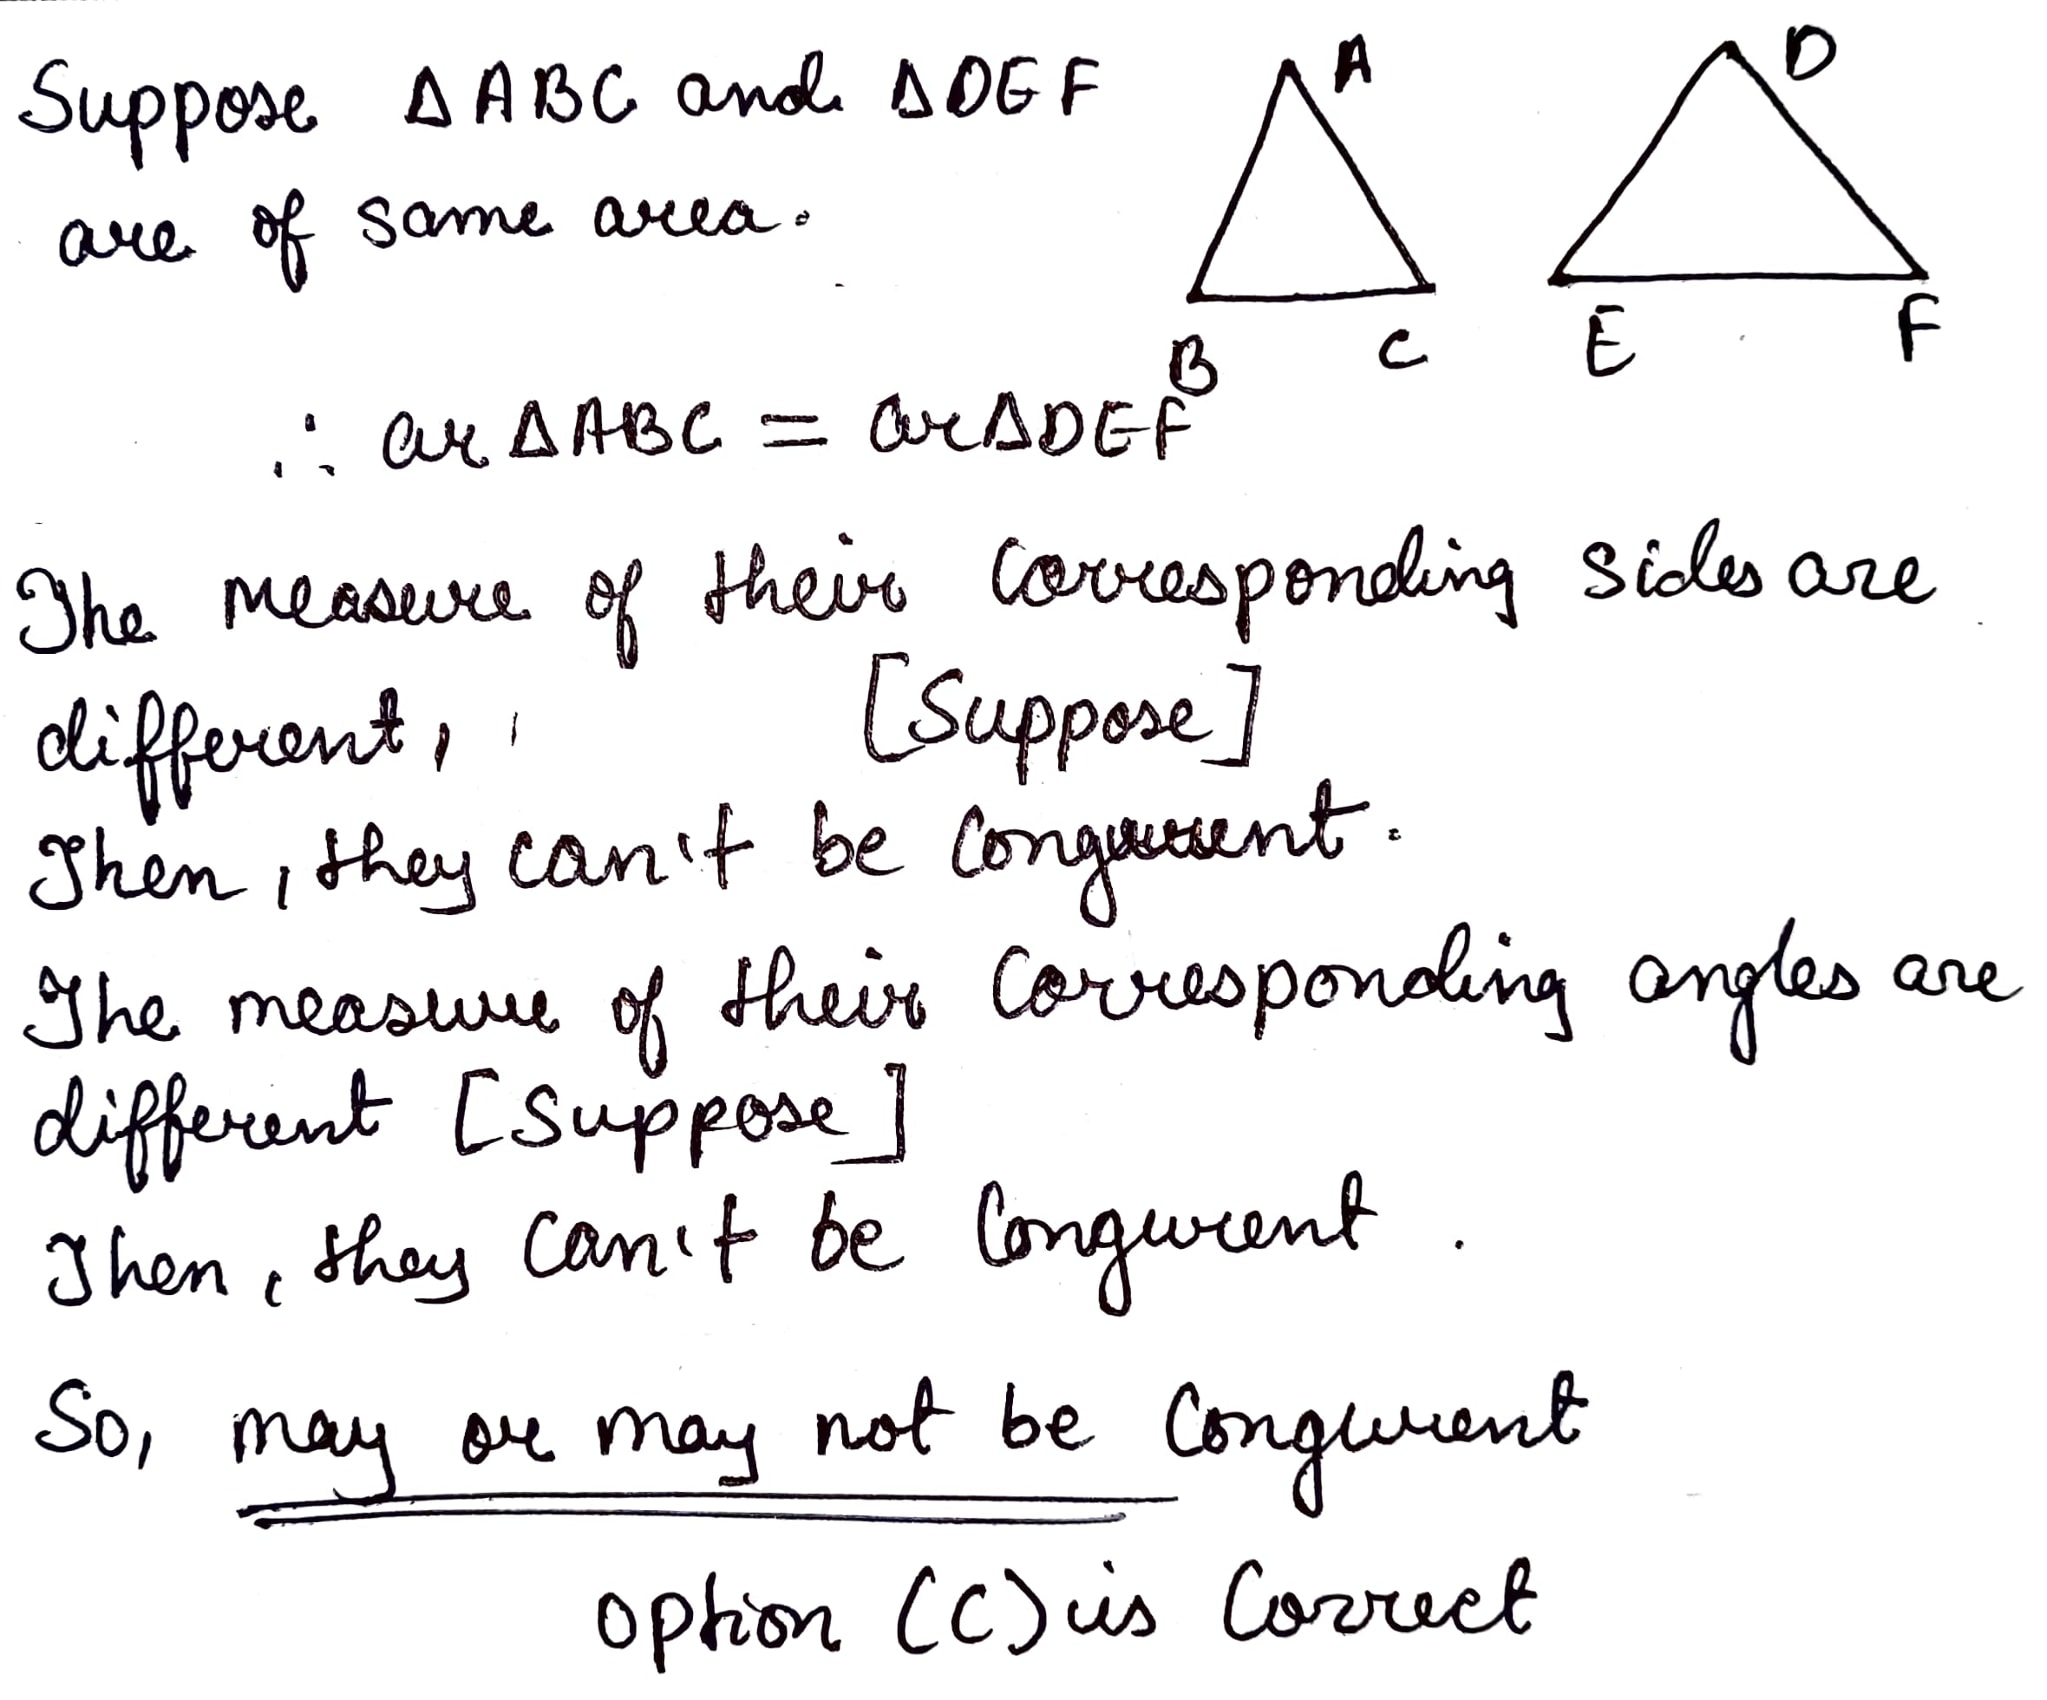 Suppose Δ ABC and ΔDEF
are of same area.
A
D
B
C
E
F
∴ ar ΔABC = arΔDEF
The measure of their corresponding sides are
different, [Suppose]
Then, they can't be congruent.
The measure of their corresponding angles are
different [Suppose]
Then, they can't be congurent.
So, may or may not be congurent
option (C) is correct